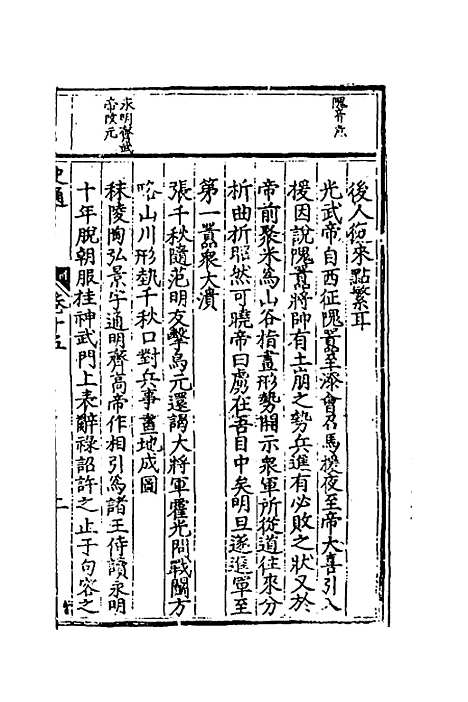 隗音危
永明齊武
帝改元
後人徃來點繁耳
光武帝自西征隗囂至漆會召馬援夜至帝大喜引入
援因說隗囂將帥有土崩之勢兵進有必敗之狀又於
帝前聚米為山谷指畫形勢開示衆軍所從道徃來分
析曲折昭然可曉帝曰虜在吾目中矣明旦遂進軍至
第一囂衆大潰
張千秋隨范明友擊烏元還謁大將軍霍光問戰鬬方
略山川形勢千秋口對兵事畫地成圖
秣陵陶弘景字通明齊高帝作相引為諸王侍讀永明
十年脫朝服挂神武門上表辭祿詔許之止于句容之
史通
卷十五